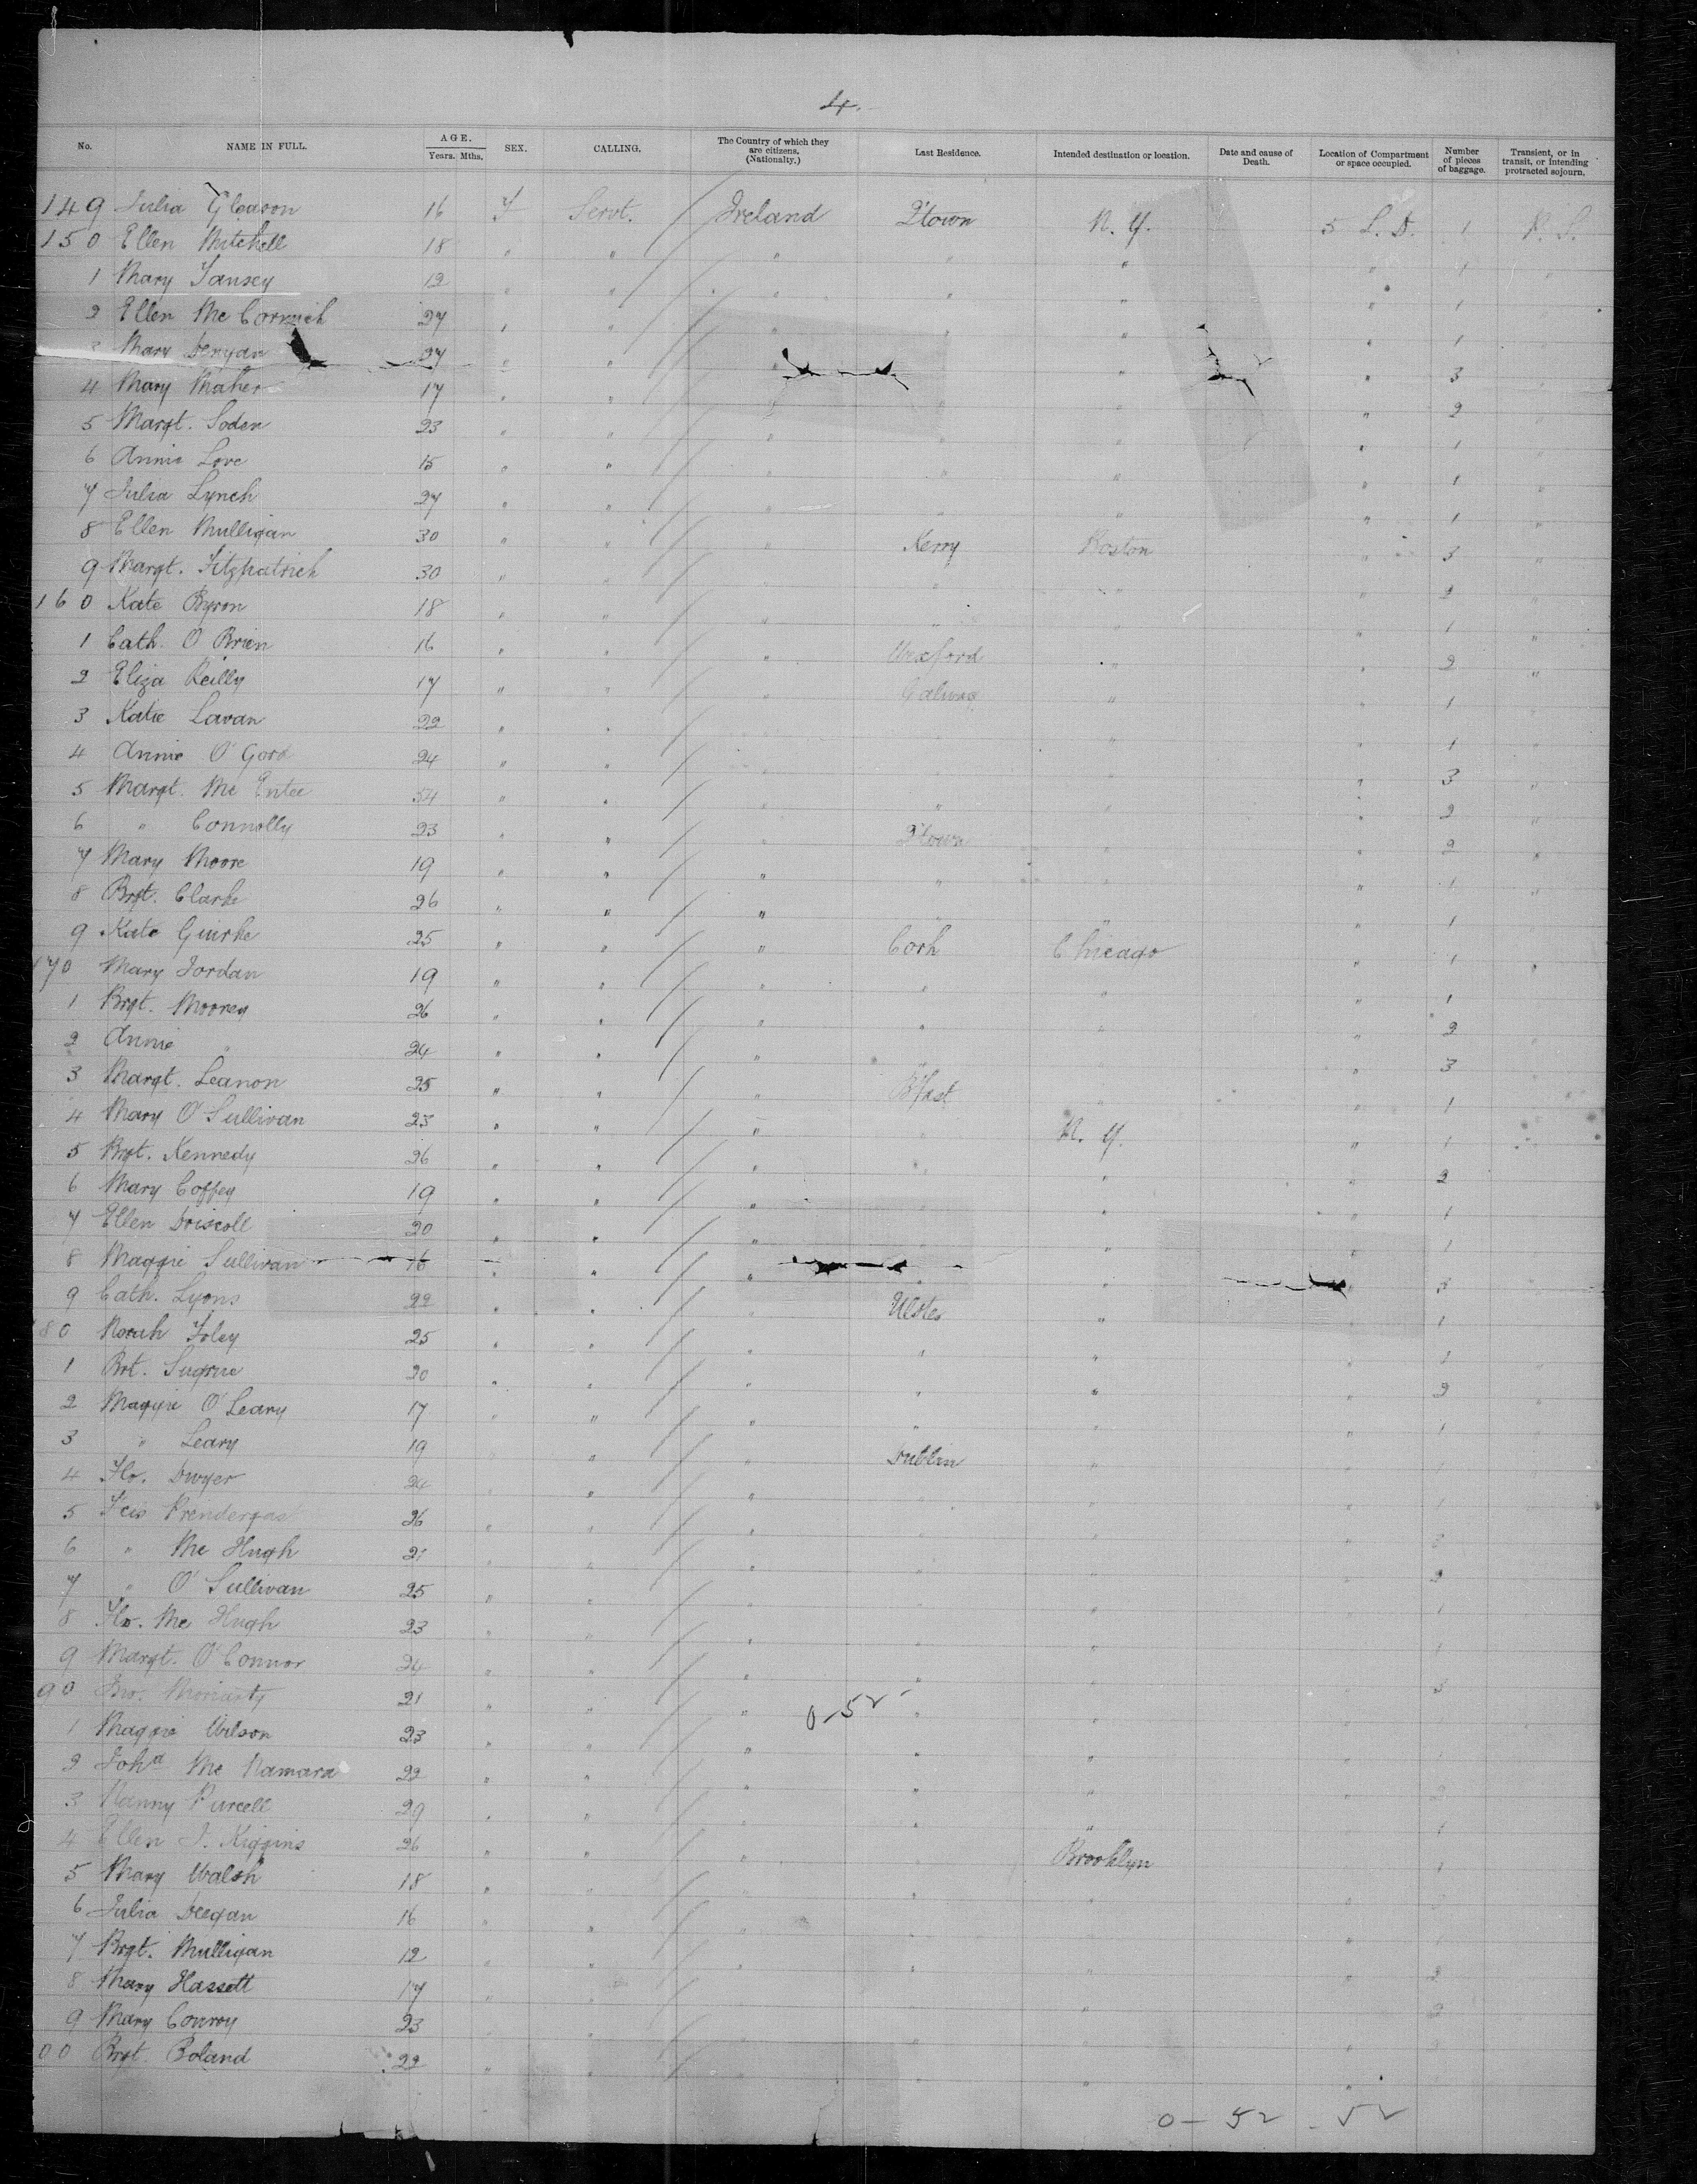 4.
No. NAME IN FULL. AGE. Years. Mths. SEX. CALLING. The Country of which they are citizens. (Nationality.) Last Residence. Intended destination or location. Date and cause of Death. Location of Compartment or space occupied. Number of pieces of baggage. Transient, or in transit, or intending protracted sojourn.
149 Julia Gleason 16 F Servt. Ireland Q'town N. Y. 5 L. D. 1 P. S.
150 Ellen Mitchell 18 " " " " " " 1 "
1 Mary Tansey 19 " " " " " " 1 "
2 Ellen Mc Cormick 27 " " " " " " 1 "
3 Mary Denyan 27 " " " " " 3 "
4 Mary Maher 17 " " " " " " 2 "
5 Margt. Soden 23 " " " " " " 1 "
6 Annie Love 15 " " " " " " 1 "
7 Julia Lynch 27 " " " " " " 1 "
8 Ellen Mulligan 30 " " " Kerry Boston " 3 "
9 Margt. Fitzpatrick 30 " " " " " " 2 "
160 Kate Byron 18 " " " " " " 1 "
1 Cath. O'Brien 16 " " " Wexford " " 2 "
2 Eliza Reilly 17 " " " Galway " " 1 "
3 Katie Lavan 22 " " " " " " 1 "
4 Annie O'Gara 24 " " " " " " 3 "
5 Margt. Mc Entee 54 " " " " " " 2 "
6 " Connolly 23 " " " Q'town " " 2 "
7 Mary Moore 19 " " " " " " 1 "
8 Brgt. Clarke 26 " " " " " " 1 "
9 Kate Guirke 25 " " " Cork Chicago " 1 "
170 Mary Jordan 19 " " " " " " 1
1 Brgt. Mooney 26 " " " " " " 2
2 Annie " 24 " " " " " " 3
3 Margt. Leanon 25 " " " B'fast " " 1
4 Mary O'Sullivan 23 " " " " N. Y. " 1
5 Brgt. Kennedy 26 " " " " " " 2
6 Mary Coffey 19 " " " " " " 1
7 Ellen Driscoll 20 " " " " " " 1
8 Maggie Sullivan 16 " " " " " " 3
9 Cath. Lyons 22 " " " Ulster " " 1
180 Norah Foley 25 " " " " " " 1 "
1 Brt. Sugrue 20 " " " " " " 2
2 Maggie O'Leary 17 " " " " " " 1 "
3 " Leary 19 " " " Dublin " " 1
4 Flo. Dwyer 24 " " " " " " 1
5 Fcis Prendergast 26 " " " " " " 3
6 " Mc Hugh 21 " " " " " " 2
7 " O'Sullivan 25 " " " " " " 1
8 Flo. Mc Hugh 23 " " " " " " 1
9 Margt. O'Connor 24 " " " " " " 3
90 Jno. Moriarty 21 " " " 0-52 " "
1 Maggie Wilson 23 " " " " " "
2 Joha Mc Namara 22 " " " " " " 2
3 Nanny Purcell 29 " " " " " 1
4 Ellen J. Kiggins 26 " " " " Brooklyn 1
5 Mary Walsh 18 " " " " " "
6 Julia Deegan 16 " " " " " "
7 Brgt. Mulligan 12 " " " " " " 2
8 Mary Hassett 17 " " " " " " 2
9 Mary Conroy 23 " " " " " "
00 Brgt. Boland 22 " " " " " "
0 - 52 - 52